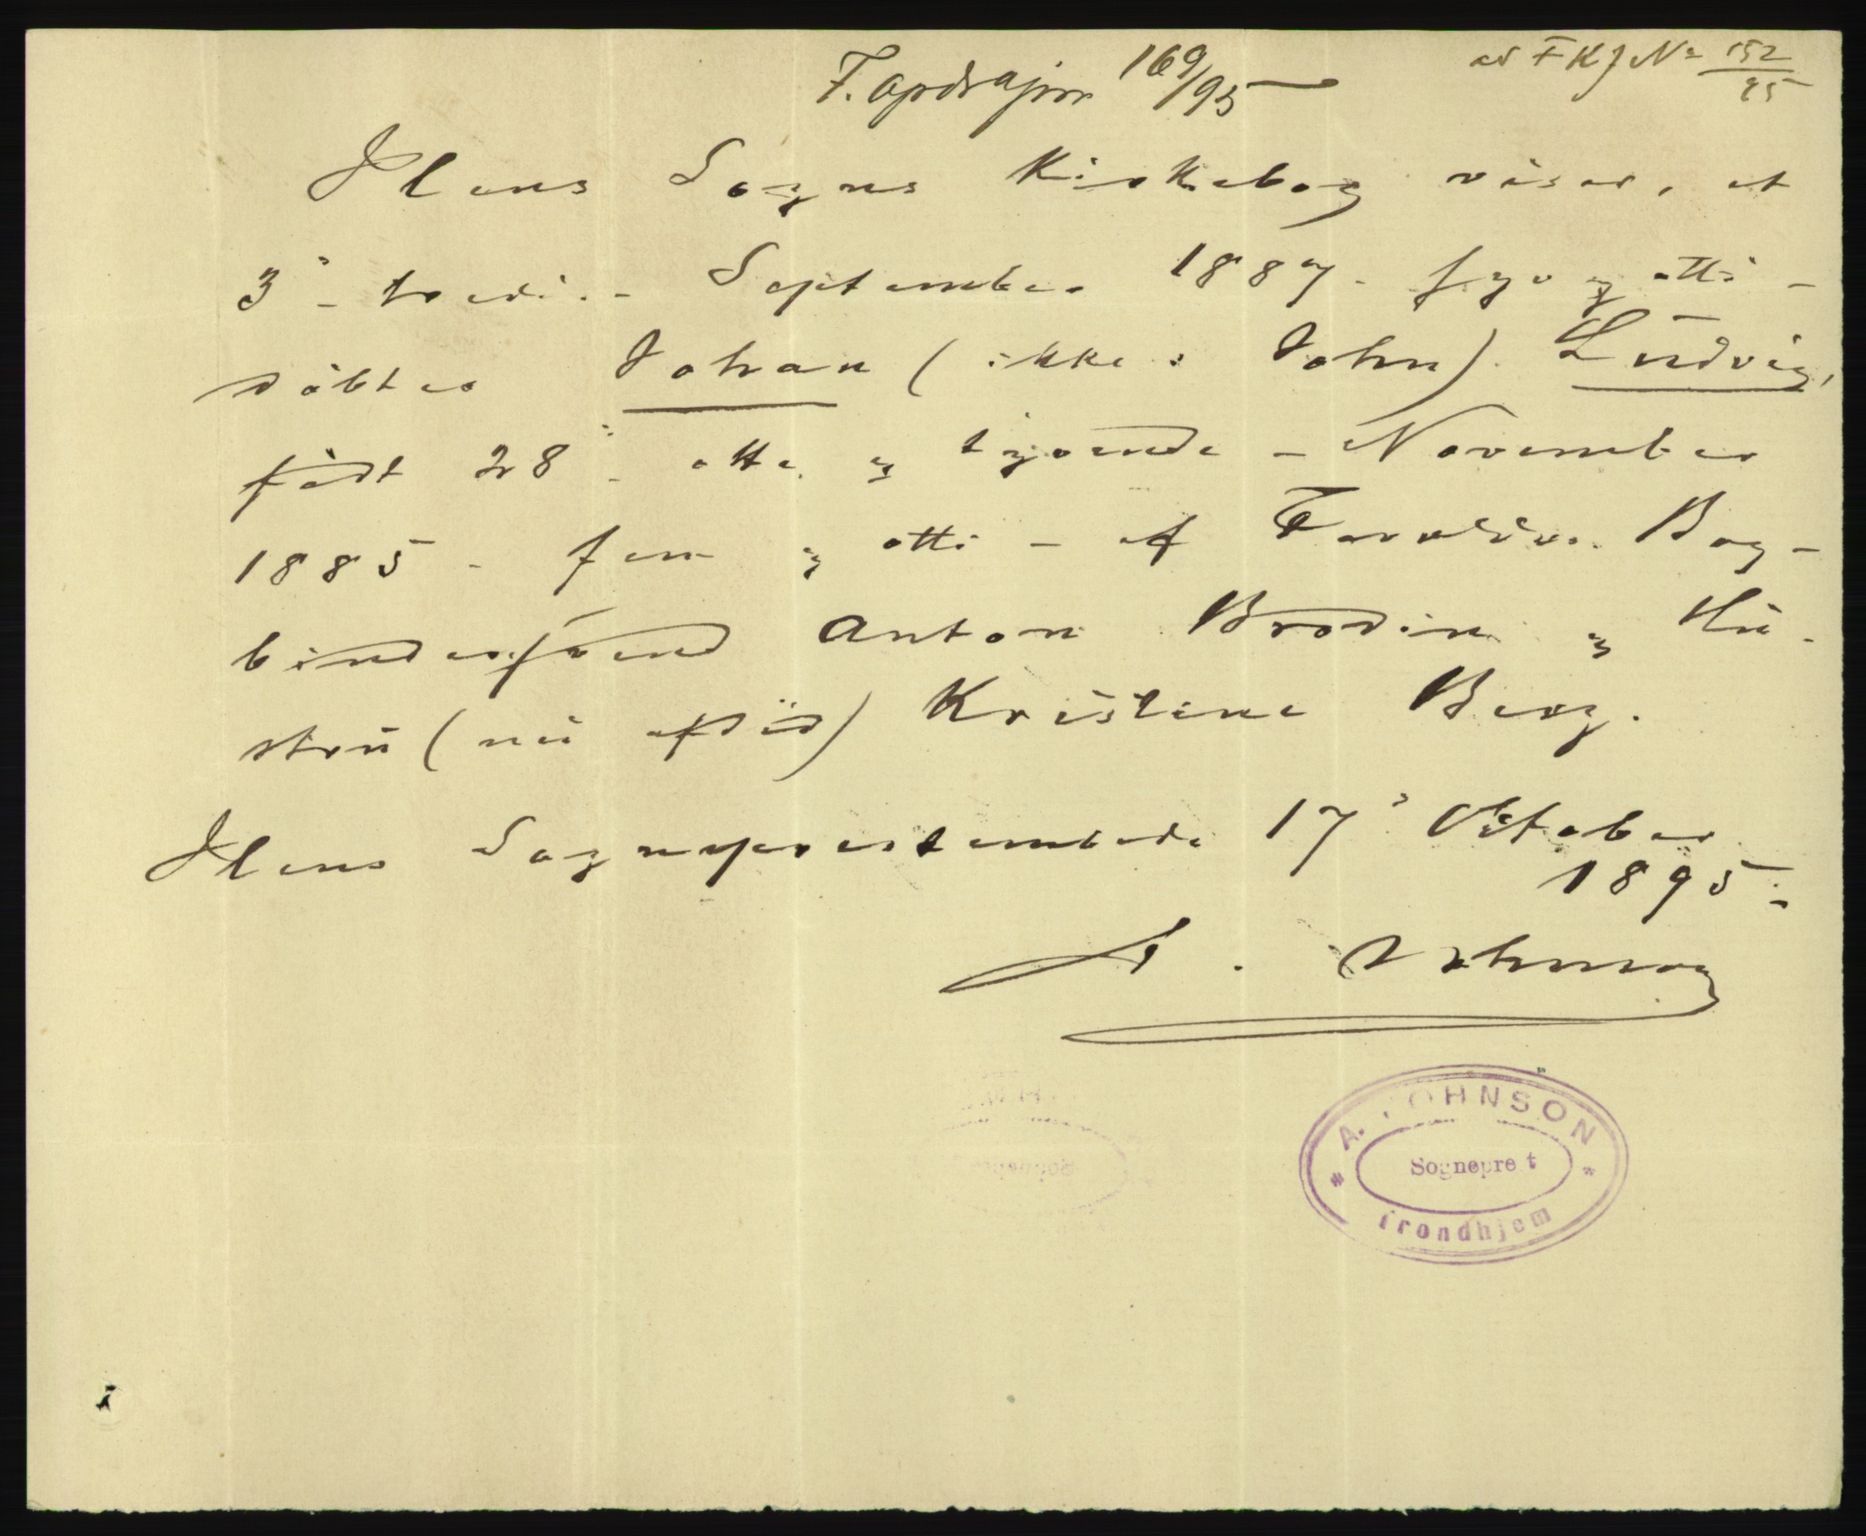 169/95
ad F K J No 152/95
Ilens Sogns Kirkebog viser, at
3die - tredie - September 1887 - syv og otti -
döbtes Johan (ikke: John) Ludvig,
född 28de otte og tyvende - November
1885 - fem og otti - af Forældre: Bog-
bindersvend Anton Brodin og Hu-
stru (nu afdöd) Kristine Berg.
Ilens Sogneprestembede 17de Oktober
1895.
A. Johnson
A. JOHNSON
Sogneprest
Trondhjem